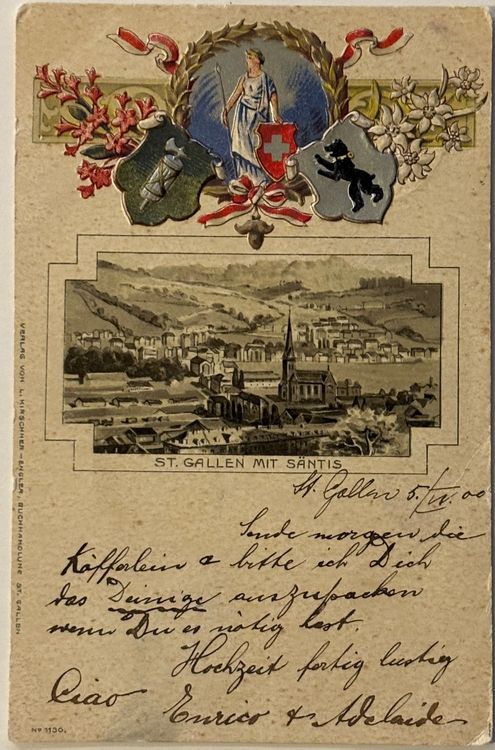 ST. GALLEN MIT SÄNTIS
VERLAG VON L. KIRSCHNER-ENGLER, BUCHHANDLUNG ST. GALLEN
St. Gallen 5./IV. 00
Sende morgen die
Köfferlein & bitte ich Dich
das Deinige auszupacken
wenn Du es nötig hast.
Hochzeit fertig lustig
Ciao
Enrico & Adelaide
No 1130.